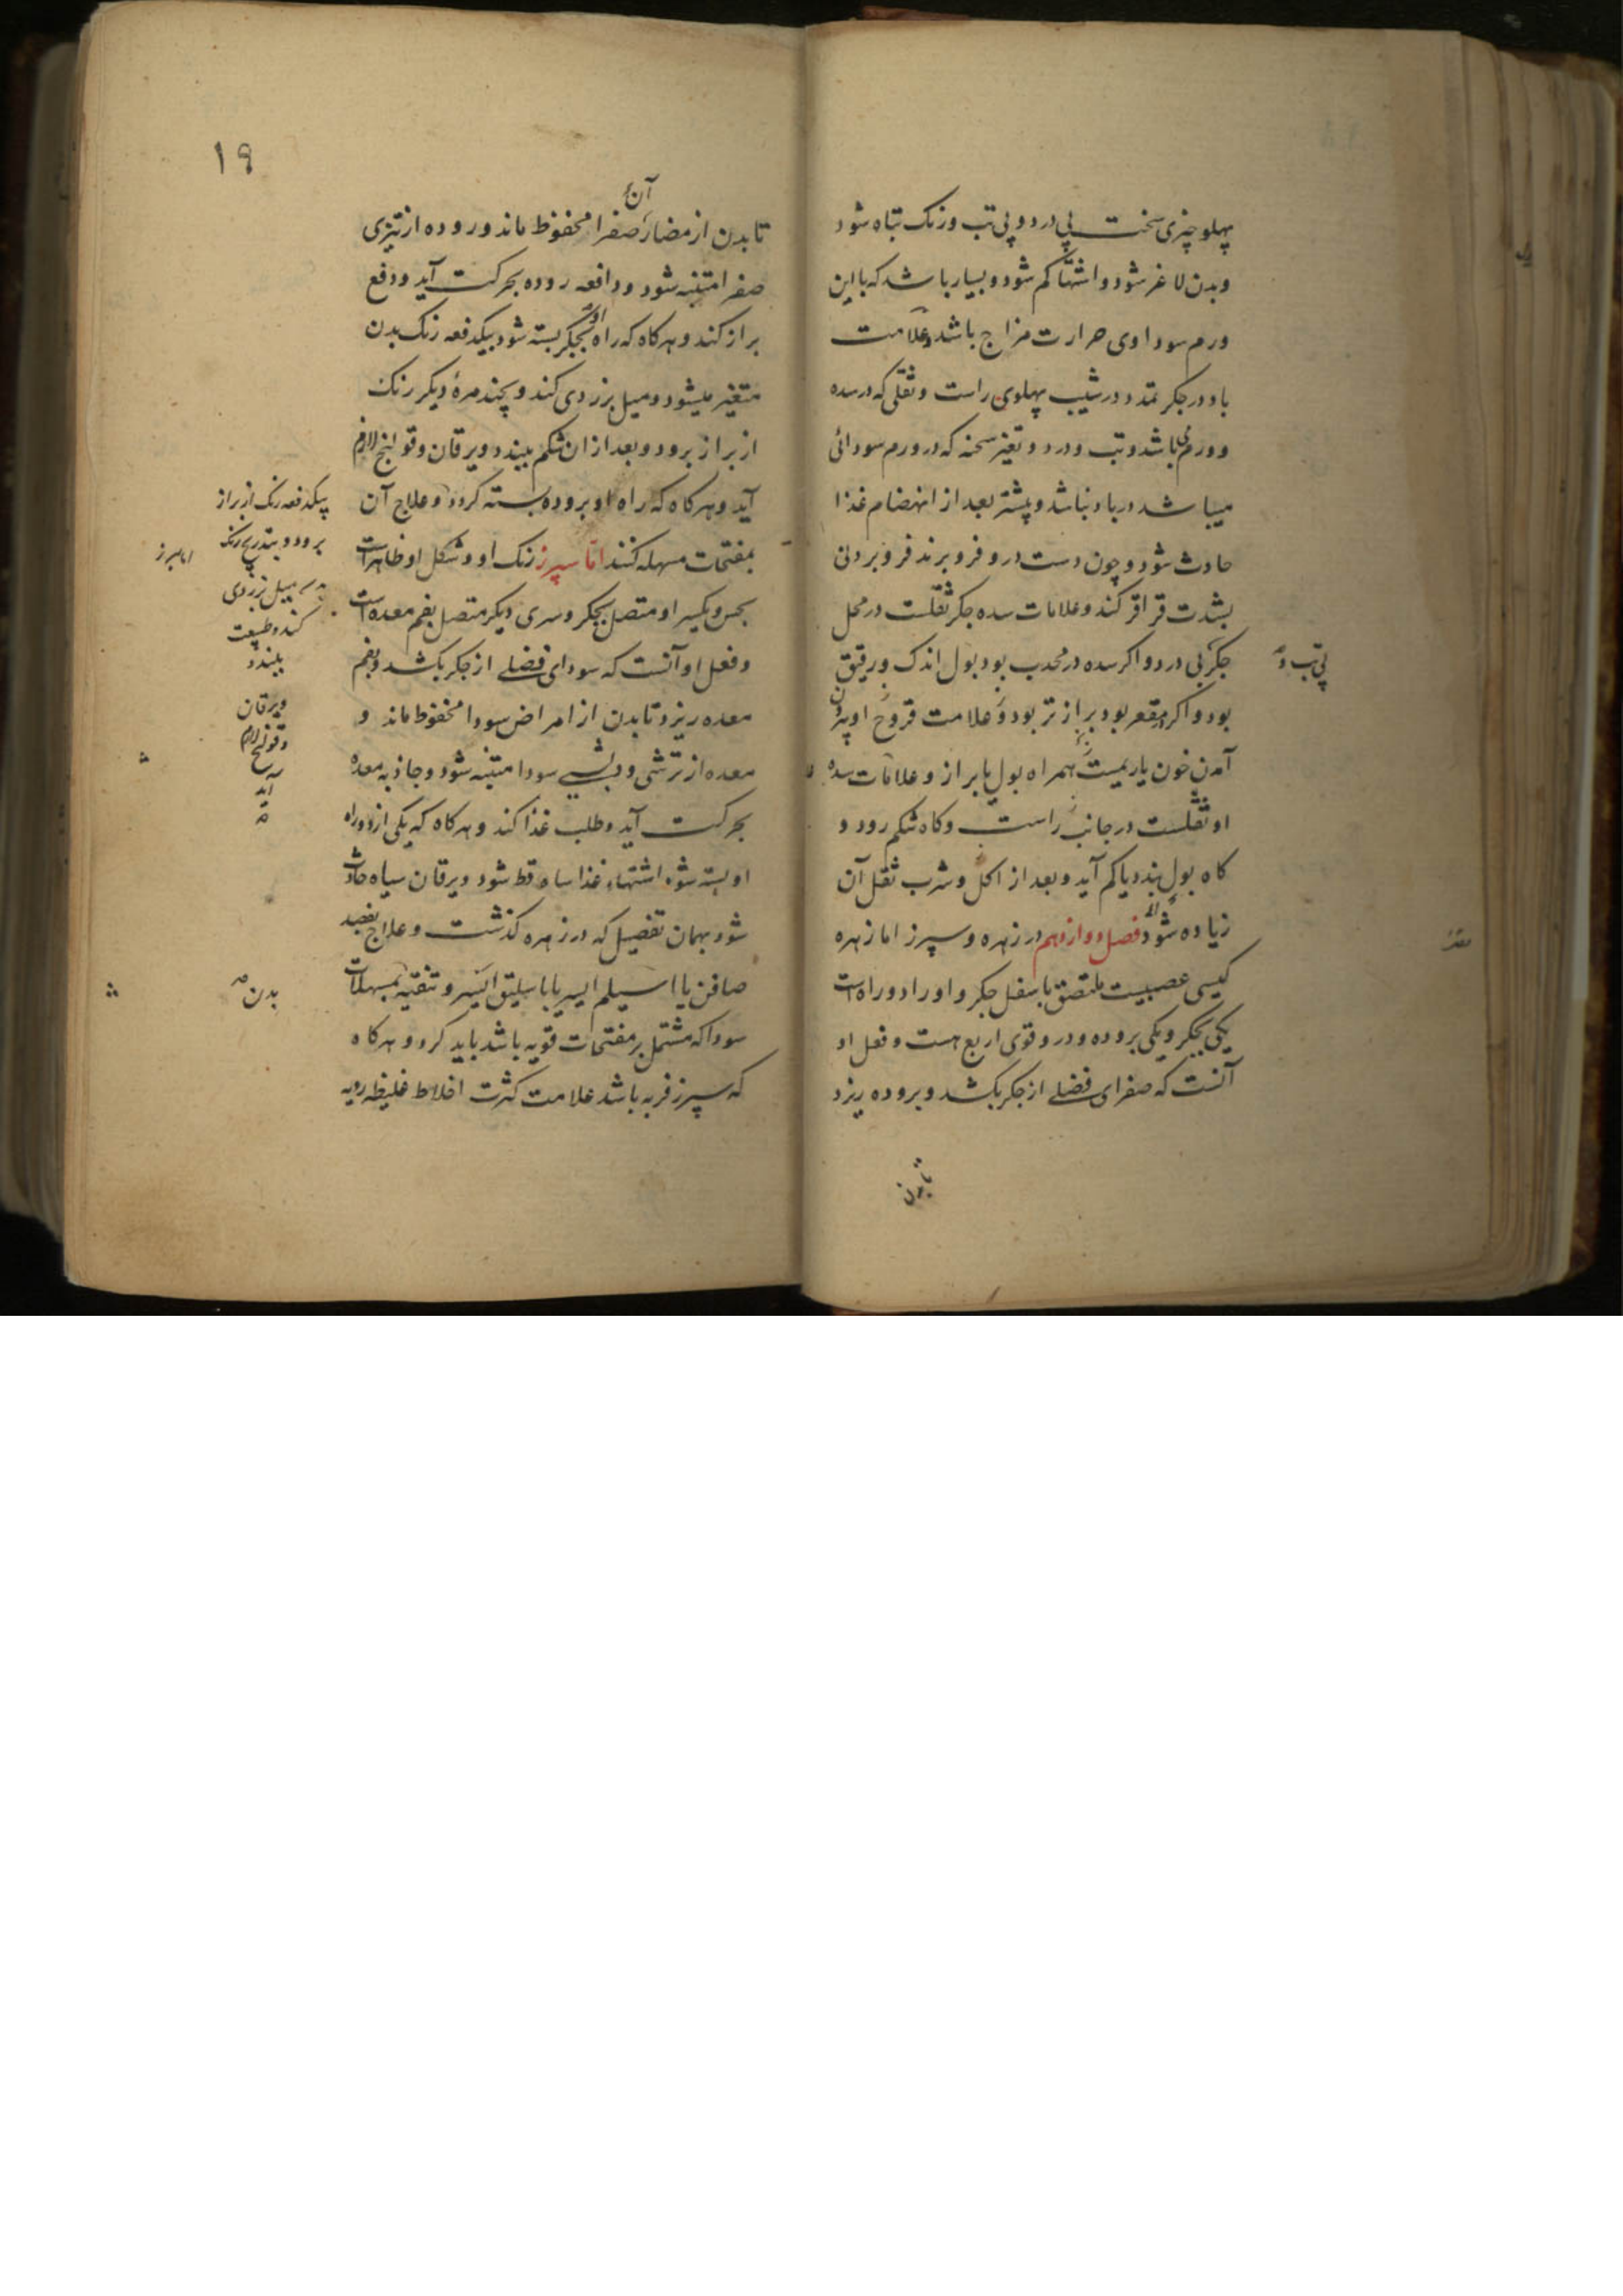 پهلو چیزی سخت بی درد و بی تب و رنک تباه شود
و بدن لاغر شود و اشتها کم شود و بسیار باشد که با این
ورم سوداوی حرارت مزاج باشد و علامت
باد در جکر تمدد در شیب پهلوی راست و ثقلی که در سده
و ورم باشد و تب و درد و تغیر سحنه که در ورم سودائی
میباشد در باد نباشد و پیشتر بعد از انهضام غذا
حادث شود و چون دست درو فرو برند فرو بردنی
بشدت قراقر کند و علامات سده جکر ثقلست در محل
جکر بی درد و اکر سده در محدب بود بول اندک و رقیق
بی تب و
بود و اکر در مقعر بود براز تر بود و علامت قروح او بیرون
آمدن خون یا ریمست همراه بول یا براز و علامات سده
او ثقلست در جانب راست و کاه شکم رود و
کاه بول بندد یا کم آید و بعد از اکل و شرب ثقل آن
زیاده شود فصل دوازدهم در زهره و سپرز اما زهره
کیسی عصبیست ملتصق باسفل جکر و او را دو راه است
یکی بجکر و یکی بروده و درو قوی اربع هست و فعل او
آنست که صفرای فضلی از جکر بکشد و بروده ریزد
تا بدن
١٩
آن
تا بدن از مضار صفرا محفوظ ماند و روده از تیزی
صفرا متنبه شود و دافعه روده بحرکت آید و دفع
براز کند و هرکاه که راه او بجکر بسته شود بیکدفعه رنک بدن
متغیر میشود و میل بزردی کند و بچند مرهٔ دیکر رنک
از براز برود و بعد از ان شکم ببندد و یرقان و قولنج لازم
آید و هرکاه که راه او بروده بسته کردد و علاج آن
بمفتحات مسهله کنند اما سپرز رنک او و شکل او ظاهر است
بحس و یکسر او متصل بجکر و سری دیکر متصل بفم معده است
و فعل او آنست که سودای فضلی از جکر بکشد و بفم
معده ریزد تا بدن از امراض سودا محفوظ ماند و
معده از ترشی و سودا متنبه شود و جاذبه معده
بحرکت آید و طلب غذا کند و هرکاه که یکی از دو راه
او بسته شود اشتهاء غذا ساقط شود و یرقان سیاه حادث
شود بهمان تفصیل که در زهره کذشت و علاج بفصد
صافن یا اسیلم ایسر یا باسلیق ایسر و تنقیه بمسهلات
سودا که مشتمل بر مفتحات قویه باشد باید کرد و هرکاه
که سپرز فربه باشد علامت کثرت اخلاط غلیظه ردیه
بیکدفعه رنک از براز
برود و بتدریج رنک
میل بزردی
کند و طبیعت
ببندد
و یرقان
و قولنج لازم
آید
اما سپرز
بدن